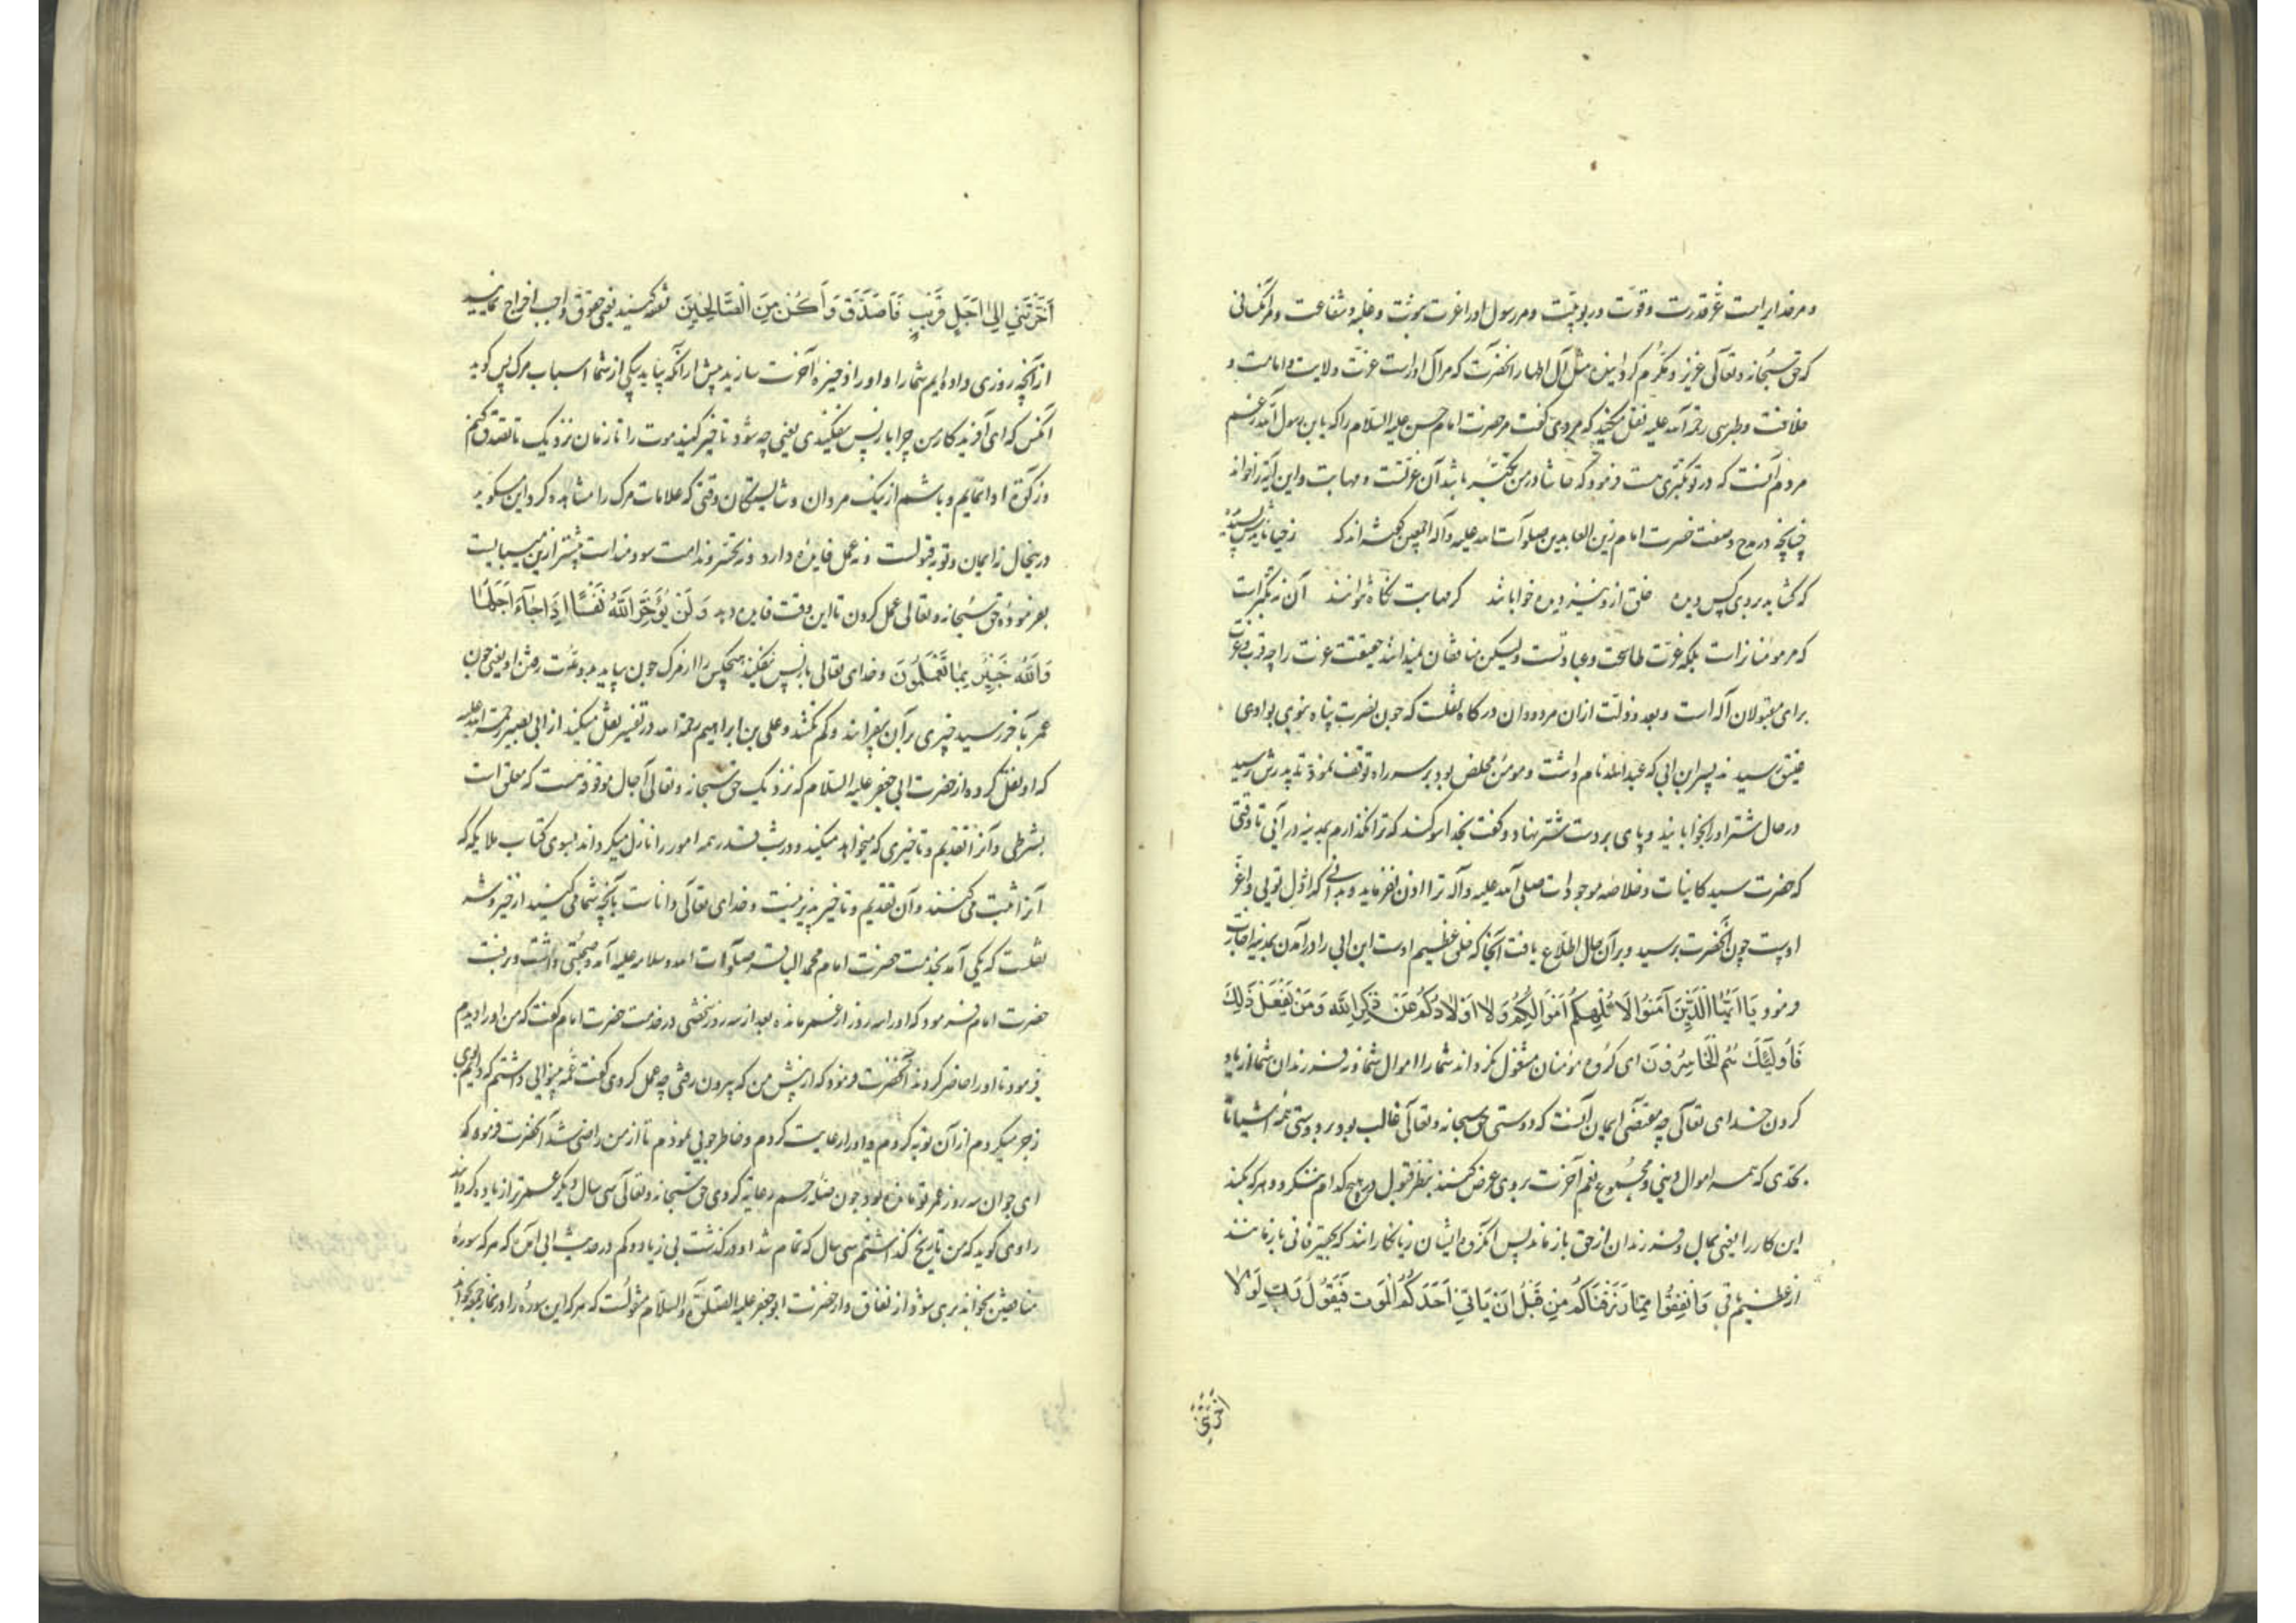 و مر خدایراست عز قدرت و قوت و ربوبیت و مر رسول او را عزت نبوت و غلبه و شفاعت و مر آنکسانی
که حق سبحانه و تعالی عزیز و مکرم گردانیده مثل آل اطهار آنحضرت که مر آل او راست عزت ولایت و امامت و
خلافت و طبرسی رحمة الله علیه نقل میکند که مردی گفت مر حضرت امام حسن علیه السلام را که یا ابن رسول الله زعم
مردم آنست که در تو تکبری هست فرمود که حاشا در من تکبر باشد آن عزتست و مهابت و این آیه را خواند
چنانچه در مدح و صفت حضرت امام زین العابدین صلوات الله علیه و آله اجمعین گفته اند که ز حیا نایدش پسندیده
که گشاید بروی کس دیده خلق ازو نیز دیده خوابانند کز مهابت نگاه نتوانند آن نه تکبر است
که مر مؤمنانراست بلکه عزت طاعت و عبادتست و لیکن منافقان نمیدانند حقیقت عزت را چه قرب و عزت
برای مقبولان اله است و بعد و ذلت از ان مردودان درگاه نقلست که چون نصرت پناه نبوی بوادی
عقیق رسید نه پسر ابن ابی که عبد الله نام داشت و مومن مخلص بود بر سر راه توقف نمود تا پدرش رسید
در حال شتر او را بخوابانید و پای بر دست شتر نهاد و گفت بخدا سوگند که ترا نگذارم بمدینه در آیی تا وقتی
که حضرت سید کاینات و خلاصه موجودات صلی الله علیه و آله ترا اذن نفرماید و بدانی که اذل تویی و اعز
اوست چون آنحضرت برسید و بر آن حال اطلاع یافت آنجا که خلق عظیم اوست ابن ابی را در آمدن بمدینه اجازت
فرمود یَا اَیُّهَا الَّذِینَ آمَنُوا لَا تُلْهِکُمْ اَمْوَالُکُمْ وَلَا اَوْلَادُکُمْ عَنْ ذِکْرِ اللَّهِ وَ مَنْ یَفْعَلْ ذَلِکَ
فَأُولَئِکَ هُمُ الْخَاسِرُونَ ای گروه مؤمنان مشغول نگرداند شما را اموال شما و فرزندان شما از یاد
کردن خدای تعالی چه مقتضی ایمان آنست که دوستی حق سبحانه و تعالی غالب بود بر دوستی همه اشیا تا
بحدی که همه اموال دنیی و مجموع نعم آخرت بر وی عرض کنند بنظر قبول در هیچ کدام ننگرد و هر که بکند
این کار را یعنی بمال و فرزندان از حق باز ماند پس آنگروه ایشان زیانکارانند که بچیز فانی باز مانند
از عظیم باقی وَ اَنْفِقُوا مِمَّا رَزَقْنَاکُمْ مِنْ قَبْلِ اَنْ یَأْتِیَ اَحَدَکُمُ الْمَوْتُ فَیَقُولَ رَبِّ لَوْلَا
اَخَّرْتَنِی
اَخَّرْتَنِی اِلَىٰ اَجَلٍ قَرِیبٍ فَاَصَّدَّقَ وَ اَکُنْ مِنَ الصَّالِحِینَ نفقه کنید یعنی حقوق واجب اخراج نمایید
از آنچه روزی داده ایم شما را و او را ذخیره آخرت سازید پیش از آنکه بیاید یکی از شما اسباب مرک پس گوید
آنکس که ای آفریدکار من چرا باز پس نیفکندی یعنی چه شود تاخیر کنید موت را تا زمان نزدیک تا تصدق کنم
و زکوة ادا نمایم و باشم از نیک مردان و شایستگان وقتی که علامات مرک را مشاهده کرد این سکوید
در ینحال نه ایمان و توبه قبولست و نه عمل فایده دارد و نه تحسر و ندامت سودمند است پیشتر ازین میبایست
بفرموده حق سبحانه و تعالی عمل کردن تا این وقت فایده دهد وَ لَنْ یُؤَخِّرَ اللَّهُ نَفْسًا اِذَا جَاءَ اَجَلُهَا
وَ اللَّهُ خَبِیرٌ بِمَا تَعْمَلُونَ و خدای تعالی باز پس نیفکند هیچکس را از مرک چون بیاید مدت رفتن او یعنی چون
عمر بآخر رسید چیزی بر آن نیفزایند و کم نکنند و علی بن ابراهیم رحمة الله در تفسیر نقل میکند از ابی بصیر رحمت الله علیه
که او نقل کرده از حضرت ابی جعفر علیه السلام که نزدیک حق سبحانه و تعالی آجال موقوفه هست که معلق است
بشرطی و آنرا تقدیم و تاخیری که میخواهد میکند و در شب قدر همه امور را نازل میکرداند بسوی کتاب ملایکه که
آنرا ثبت می کنند و آن تقدیم و تاخیر پذیر نیست و خدای تعالی داناست بآنچه شما می کنید از خیر و شر
نقلست که یکی آمد بخدمت حضرت امام محمد الباقر صلوات الله و سلامه علیه آمد و صحبتی داشت و برفت
حضرت امام فرمود که او را سه روز از عمر مانده بعد از سه روز شخصی در خدمت حضرت امام گفت که من او را دیدم
فرمود تا او را حاضر کردند آنحضرت فرمود که از پیش من که بیرون رفتی چه عمل کردی گفت عمه بینوایی داشتم که دایم بوی
زجر میکردم از آن توبه کردم و او را رعایت کردم و خاطر جویی نمودم تا از من راضی شد آنحضرت فرمود که
ای جوان سه روز عمر تو مانده بود چون صله رحم رعایه کردی حق سبحانه و تعالی سی سال دیگر عمر ترا زیاده کردانید
راوی کوید که من تاریخ نگاه داشتم سی سال که تمام شد او درگذشت بی زیاد و کم در حدیث ابی آمده که هر که سوره
منافقین بخواند بری شود از نفاق و از حضرت ابو جعفر علیه الصلوة و السلام منقولست که هر که این سوره را در نماز جمعه بخواند